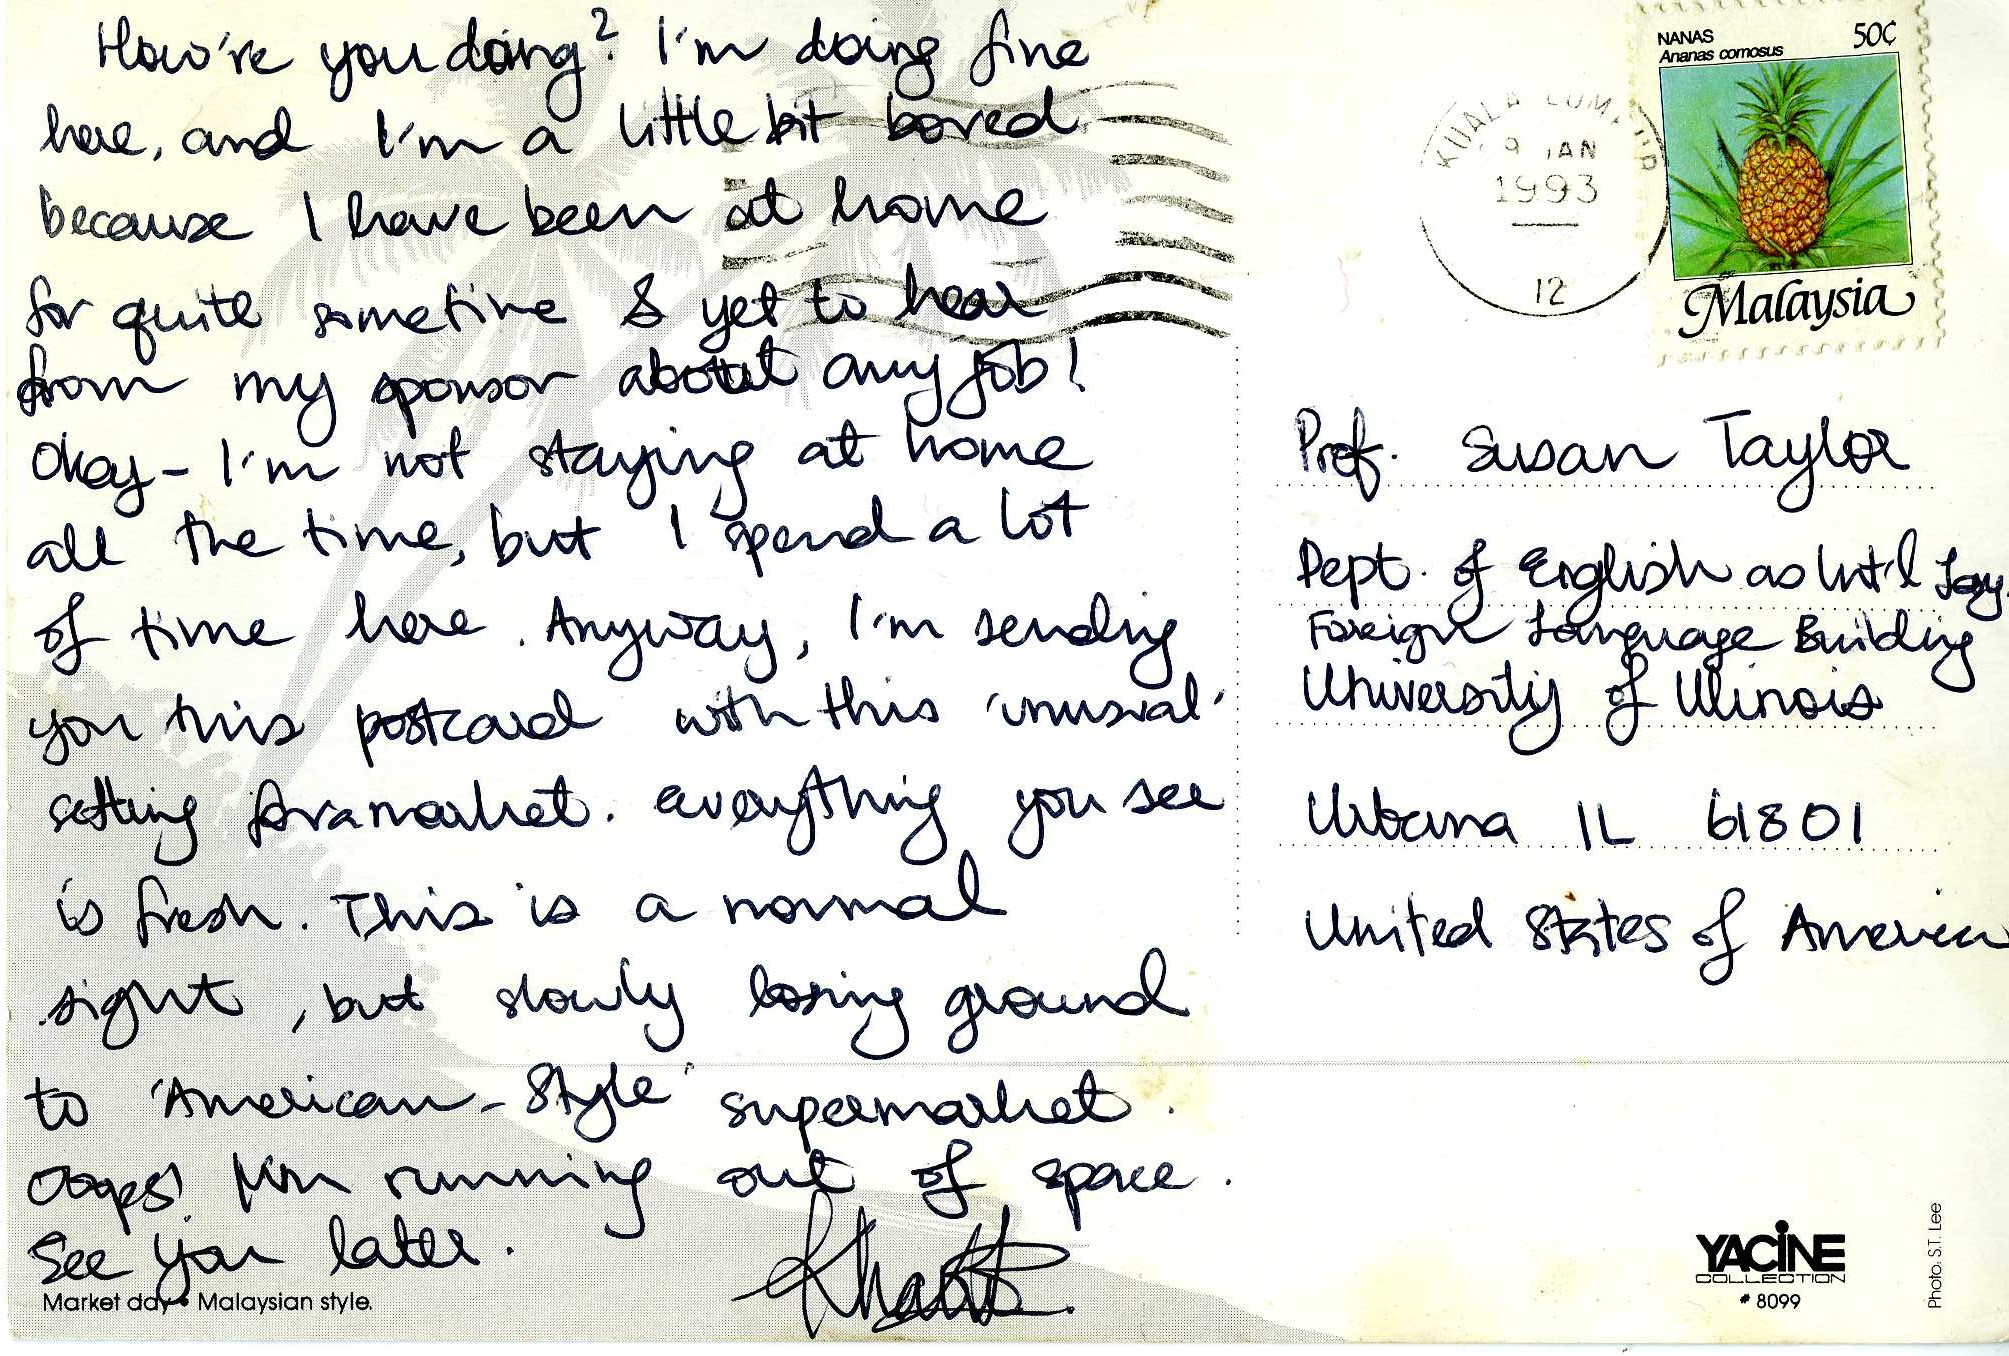 How're you doing? I'm doing fine
here, and I'm a little bit bored
because I have been at home
for quite sometime & yet to hear
from my sponsor about any job!
Okay - I'm not staying at home
all the time, but I spend a lot
of time here. Anyway, I'm sending
you this postcard with this 'unusual'
setting for a market. Everything you see
is fresh. This is a normal
sight, but slowly losing ground
to 'American-Style' supermarket.
Oops! I'm running out of space.
See you later.
Market day • Malaysian style.
NANAS 50¢
Ananas comosus
Malaysia
KUALA LUMPUR
9 JAN
1993
12
Prof. Susan Taylor
Dept. of English as Int'l Lag.
Foreign Language Building
University of Illinois
Urbana IL 61801
United States of America
YACINE
COLLECTION
# 8099
Photo: S.T. Lee